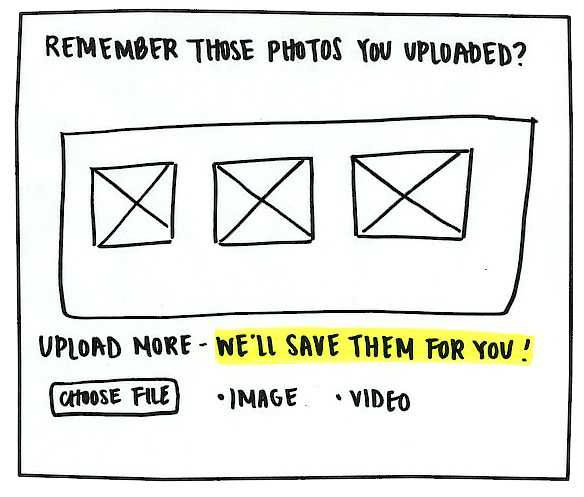 REMEMBER THOSE PHOTOS YOU UPLOADED?
UPLOAD MORE - WE'LL SAVE THEM FOR YOU!
CHOOSE FILE • IMAGE • VIDEO